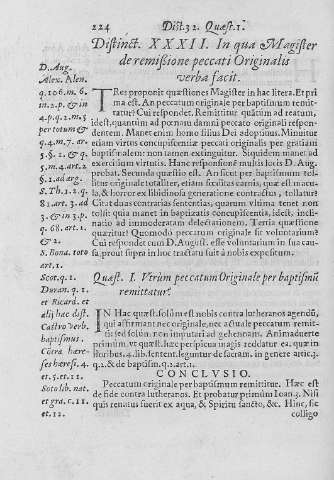 224 Dist.32. Quæst.1.
Distinct. XXXII. In qua Magister
de remissione peccati Originalis
verba facit.
D. Aug.
Alex. Alen.
q.106. m.6.
in.2.p. & in
4.p.q.2.m.5
per totum &
q.4.m.7. ar.
5.§.2. & q.
5.m.4.art.2
§.2.ad arg.
S. Th.1.2. q.
81.art.3. ad
3. & in 3.p.
q. 68. art.1.
& 2.
S. Bona. toto
art.1.
Scot.q.1.
Duran. q.1.
et Ricard. et
alij hac dist.
Castro verb.
baptismus.
Cotra. hære-
ses hæresi. 4.
et.5.et.11.
Soto lib. nat.
et gra. c.11.
et.12.
TRes proponit quæstiones Magister in hac litera. Et pri
ma est. An peccatum originale per baptismum remit-
tatur? Cui respondet. Remittitur quidem ad reatum,
idest, quantùm ad pœnam damni peccato originali respon-
dentem. Manet enim homo filius Dei adoptiuus. Minuitur
etiam virtus concupiscentiæ peccati originalis per gratiam
baptismalem: non tamen extinguitur. Siquidem manet ad
exercitium virtutis. Hanc responsionē multis locis D. Aug.
probat. Secunda quæstio est. An sicut per baptismum tol-
litur originale totaliter, etiam fœditas carnis, quæ est macu-
la, & horror ex libidinosa generatione contractus, tollatur?
Citat duas contrarias sententias, quarum vltima tenet non
tolli: quia manet in baptizatis concupiscentia, idest, incli-
natio ad immoderatam delectationem. Tertia quæstione
quæritur? Quomodo peccatum originale sit voluntarium?
Cui respondet cum D. August. esse voluntarium in sua cau-
sa, prout supra in hoc tractatu fuit à nobis expositum.
Quæst. I. Vtrùm peccatum Originale per baptismũ
remittatur?
IN Hac quæst. solùm est nobis contra lutheranos agendũ,
qui affirmant nec originale, nec actuale peccatum remit-
ti: sed solùm non imputari ad gehennam. Animaduerte
primùm, vt quæst. hæc perspicua magis reddatur ea, quæ in
scoribus. 4. lib. sentent. leguntur de sacram. in genere artic.3.
q.2. & de baptism. q.2.art.1.
CONCLVSIO.
Peccatum originale per baptismum remittitur. Hæc est
de fide contra lutheranos. Et probatur primùm Ioan.3. Nisi
quis renatus fuerit ex aqua, & Spiritu sancto, &c. Hinc, sic
colligo